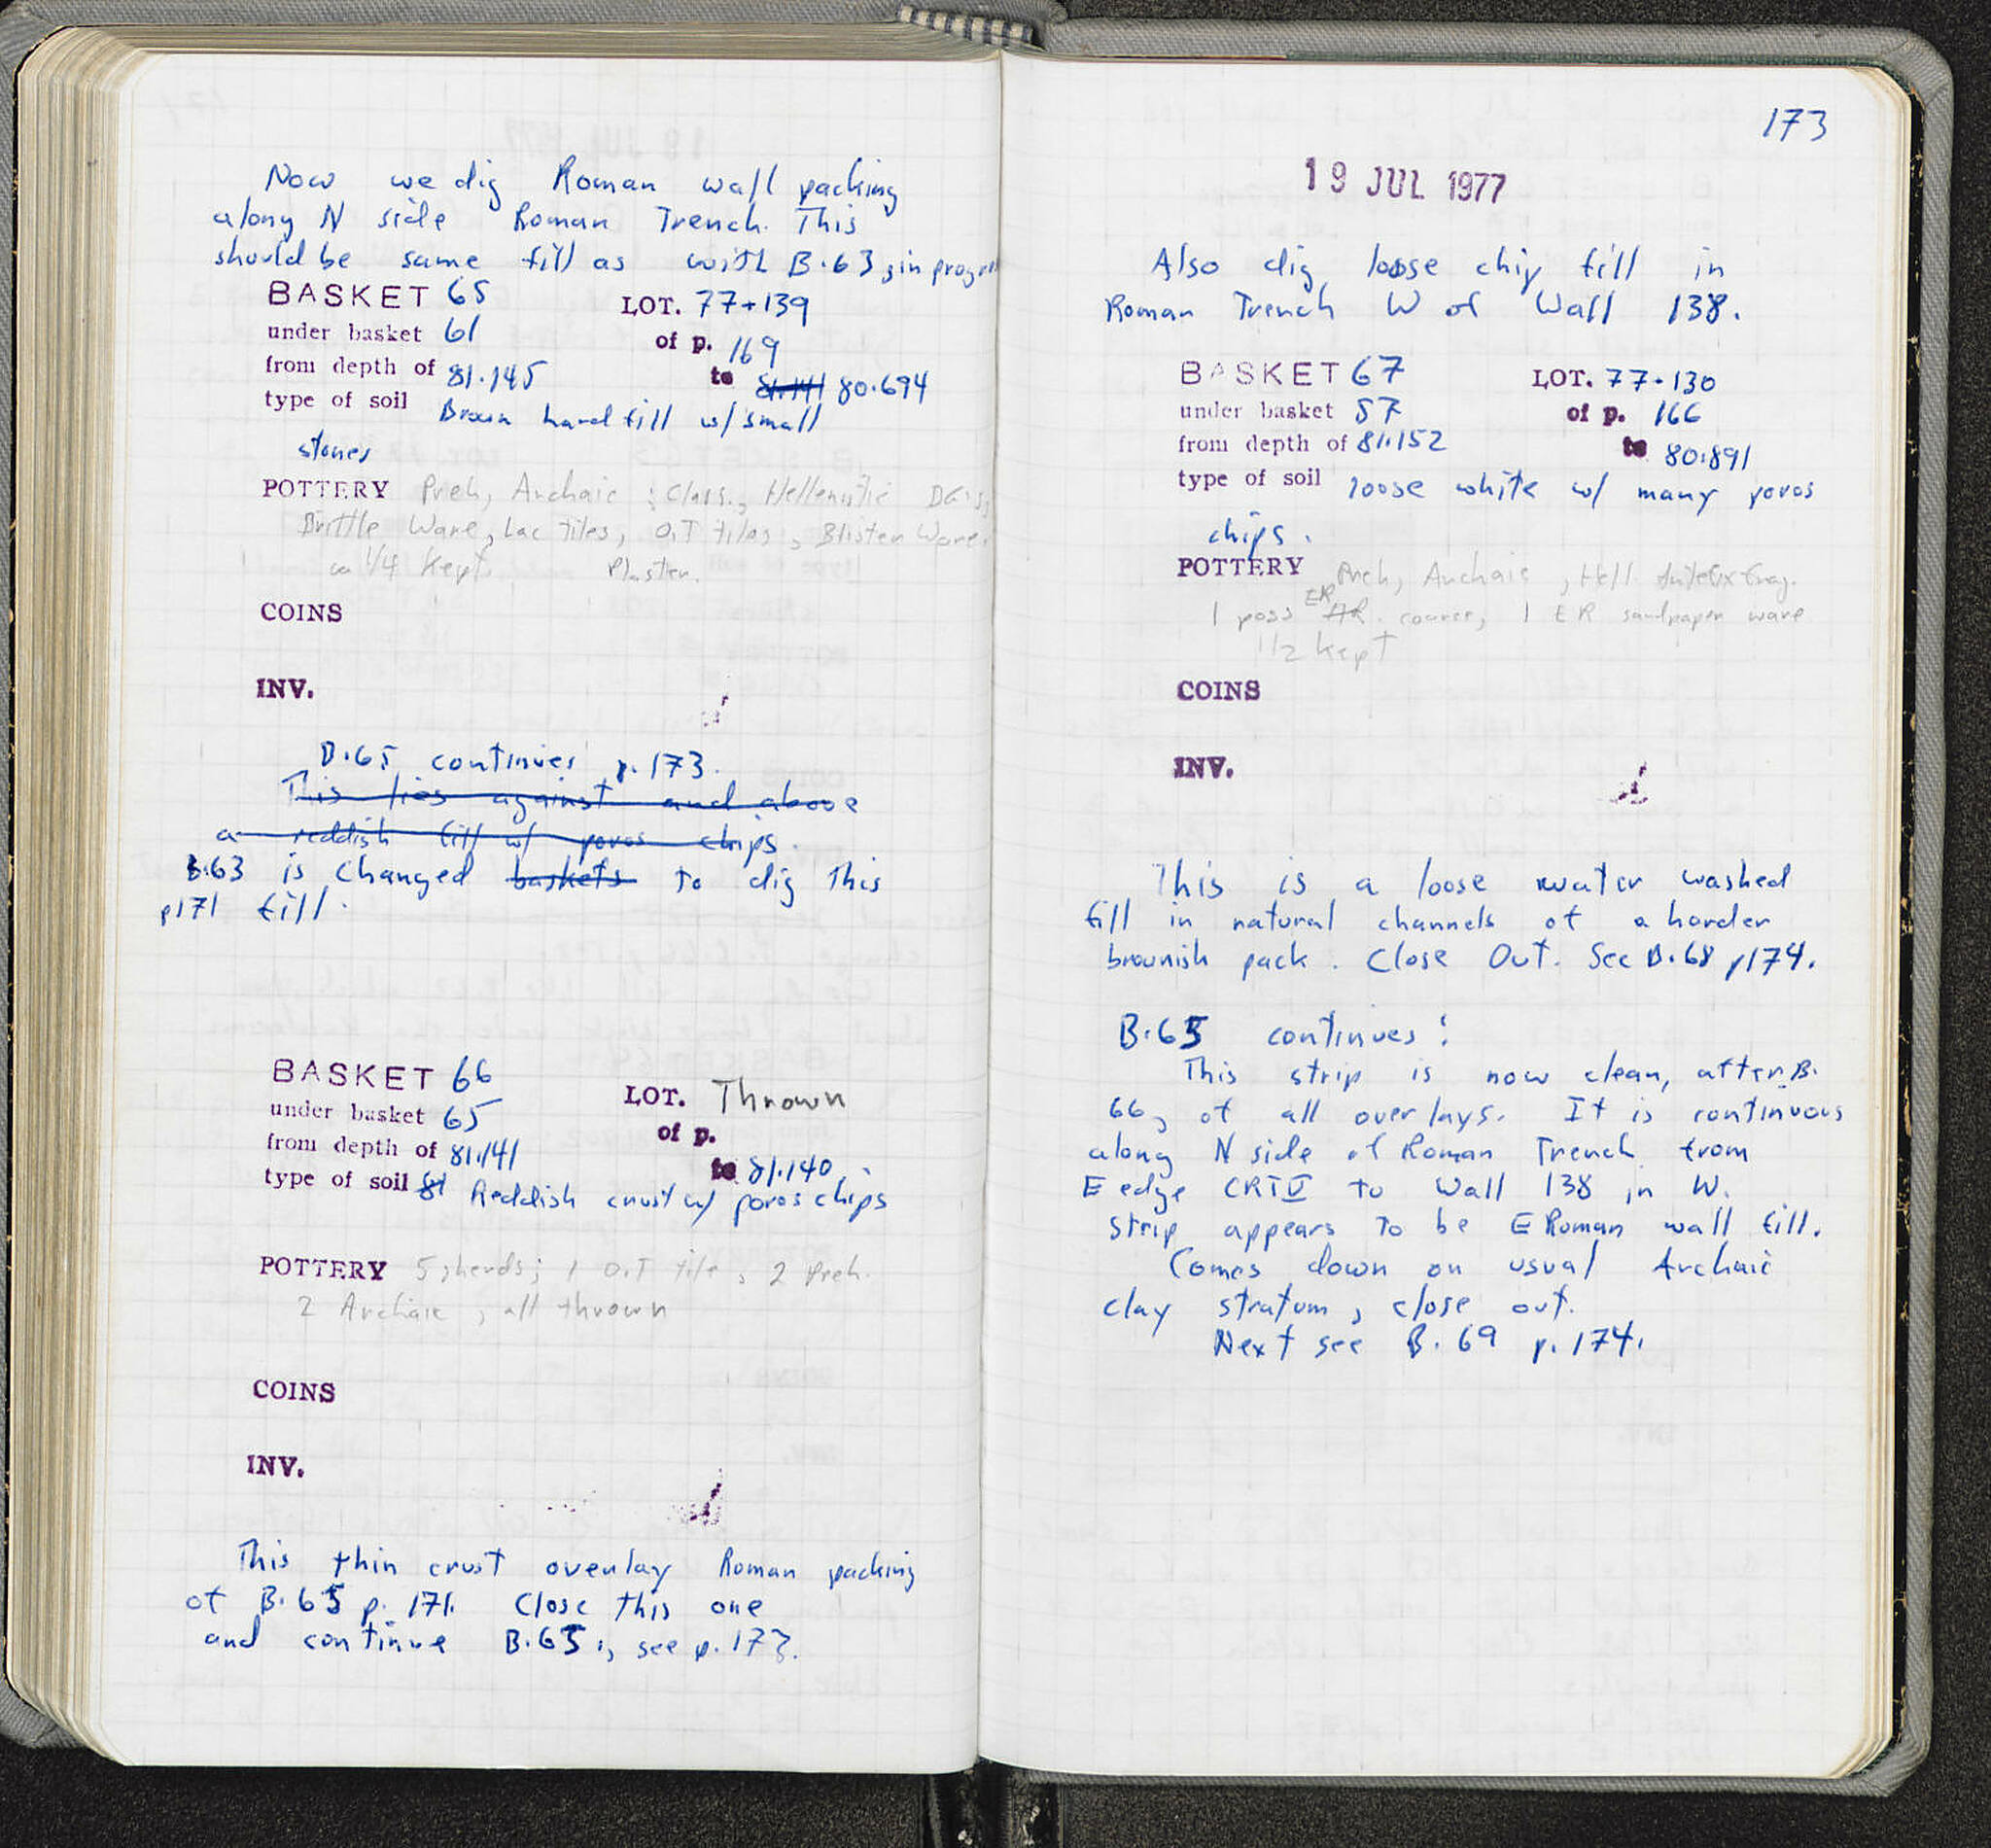 Now we dig Roman wall packing
along N side Roman Trench. This
should be same fill as with B.63, in progress
BASKET 65 LOT. 77-139
under basket 61 of p. 169
from depth of 81.145 to 81.141 80.694
type of soil Brown hard fill w/ small
stones
POTTERY Preh, Archaic, Class., Hellenistic DG's,
Brittle Ware, Lac tiles, O.T tiles, Blister Ware.
ca 1/4 Kept. Plaster.
COINS
INV.
B.65 continues p. 173.
This lies against and above
a reddish fill w/ poros chips.
B.63 is changed baskets to dig this
p171 fill.
BASKET 66 LOT. Thrown
under basket 65 of p.
from depth of 81.141 to 81.140
type of soil 81 Reddish crust w/ poros chips
POTTERY 5 sherds; 1 O.T tile, 2 Preh.
2 Archaic, all thrown
COINS
INV.
This thin crust overlay Roman packing
of B.65 p. 171. Close this one
and continue B.65, see p. 173.
173
19 JUL 1977
Also dig loose chip fill in
Roman Trench W of Wall 138.
BASKET 67 LOT. 77-130
under basket 57 of p. 166
from depth of 81.152 to 80.891
type of soil loose white w/ many poros
chips.
POTTERY Preh, Archaic, Hell. Antefix frag.
1 poss ER coarse, 1 ER sandpaper ware
1/2 kept
COINS
INV.
This is a loose water washed
fill in natural channels of a harder
brownish pack. Close Out. See B.68 p174.
B.65 continues:
This strip is now clean, after B.
66, of all overlays. It is continuous
along N side of Roman Trench from
E edge CRT V to Wall 138 in W.
Strip appears to be E Roman wall fill.
Comes down on usual Archaic
clay stratum, close out.
Next see B. 69 p. 174.